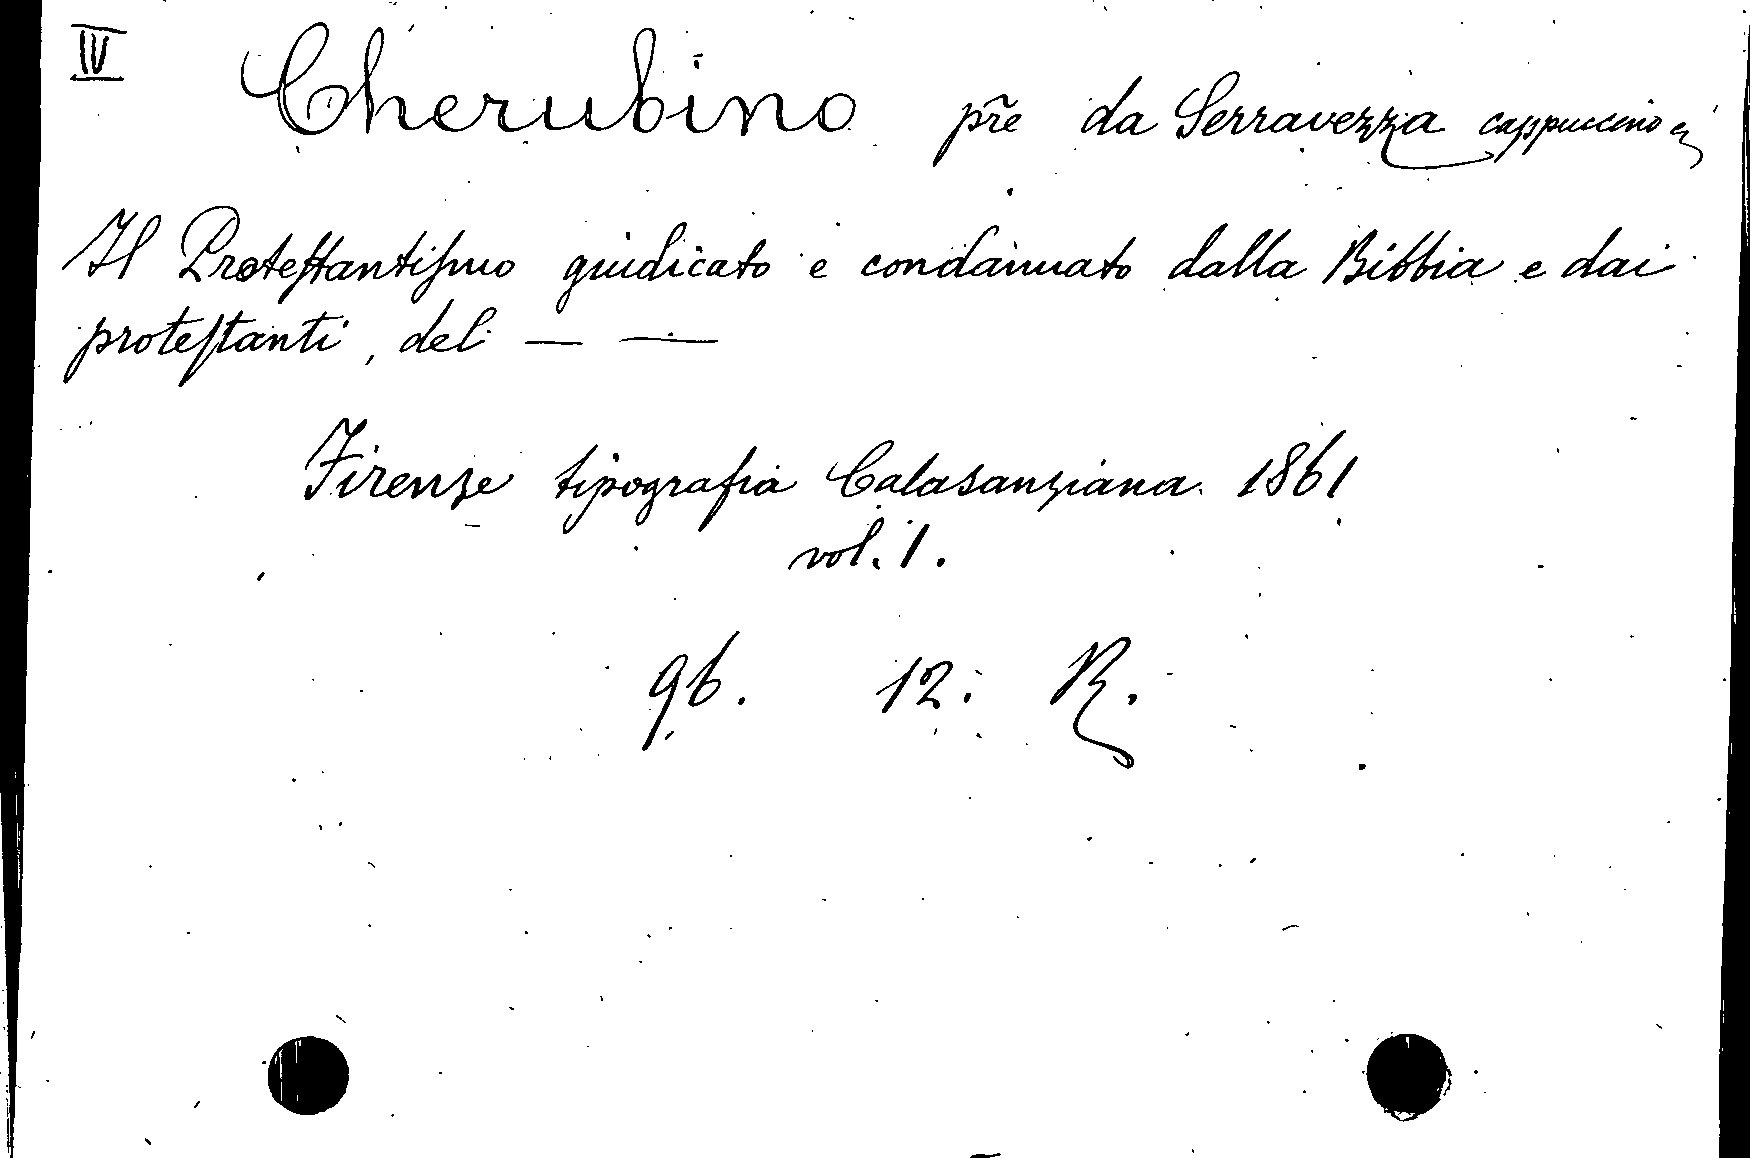 IV Cherubino pre da Serravezza cappuccino
Il Protestantismo giudicato e condannato dalla Bibbia e dai
protestanti, del — —
Firenze tipografia Calasanziana. 1861
vol. 1.
96. 12. R.